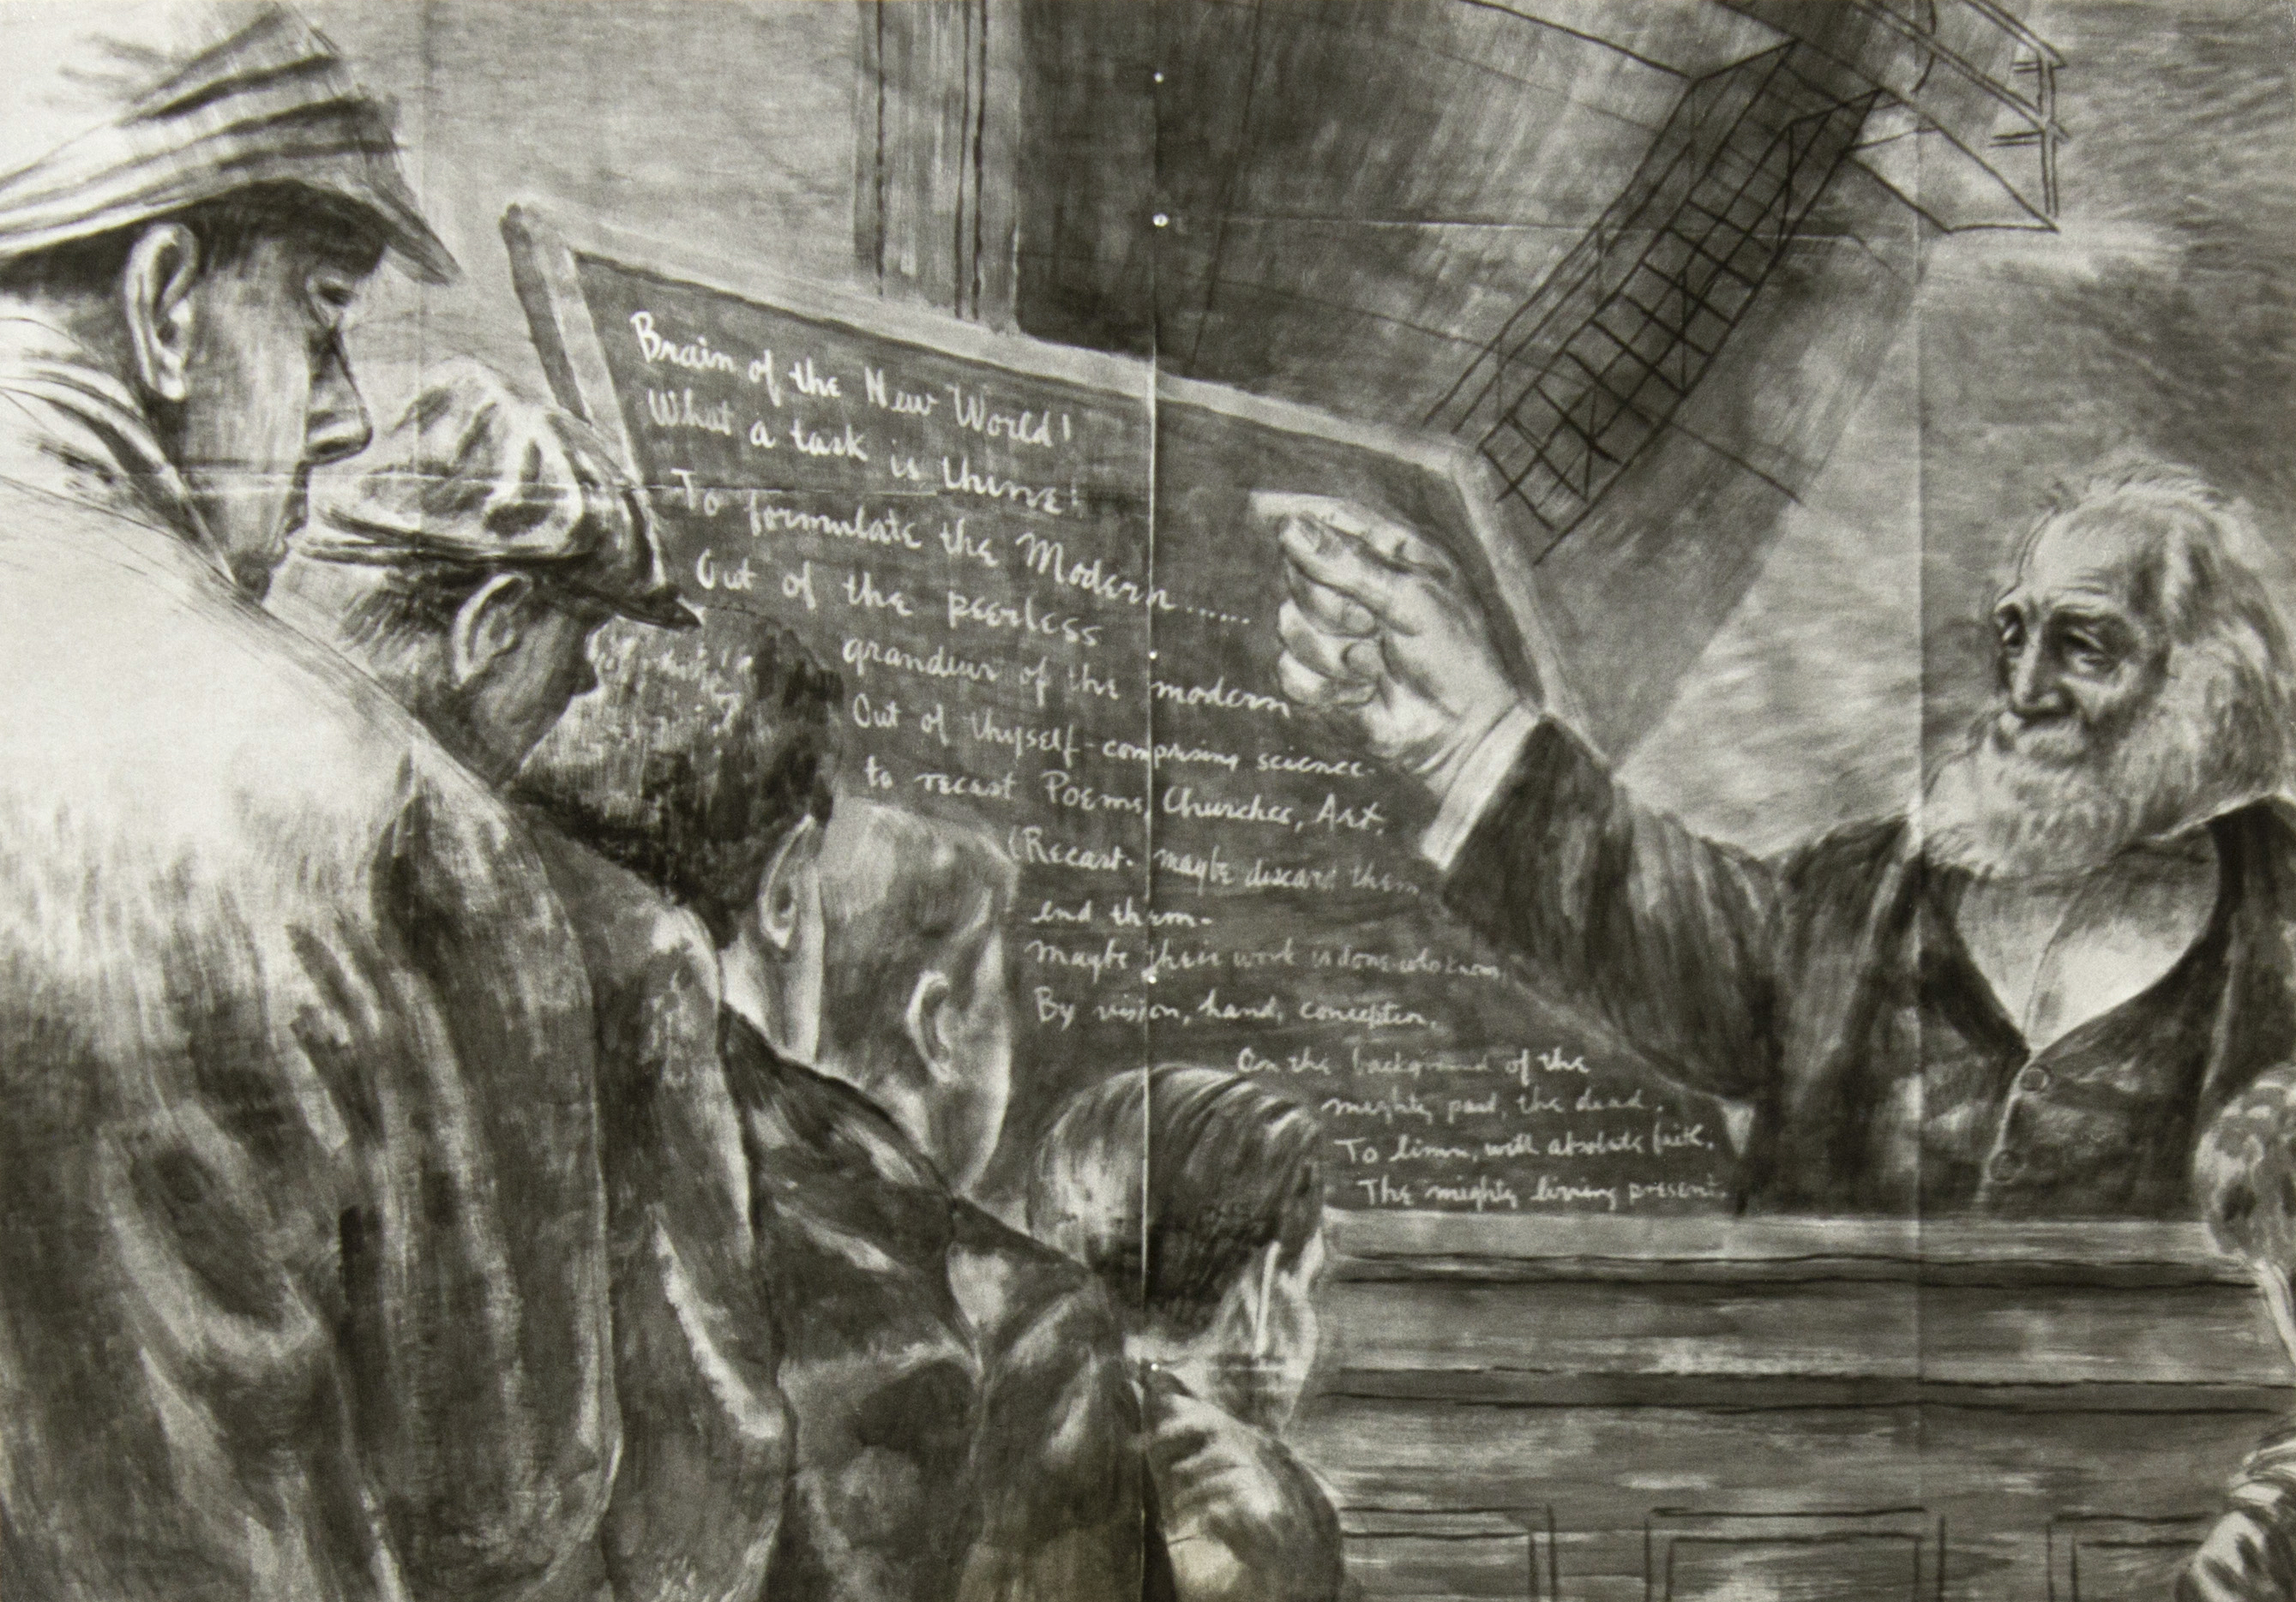 Brain of the New World!
What a task is thine!
To formulate the Modern......
Out of the peerless
grandeur of the modern
Out of thyself-comprising science-
to recast Poems, Churches, Art,
(Recast- maybe discard them
end them-
maybe their work is done who knows,
By vision, hand, conception,
On the background of the
mighty past, the dead,
To limn, with absolute faith,
The mighty living present.